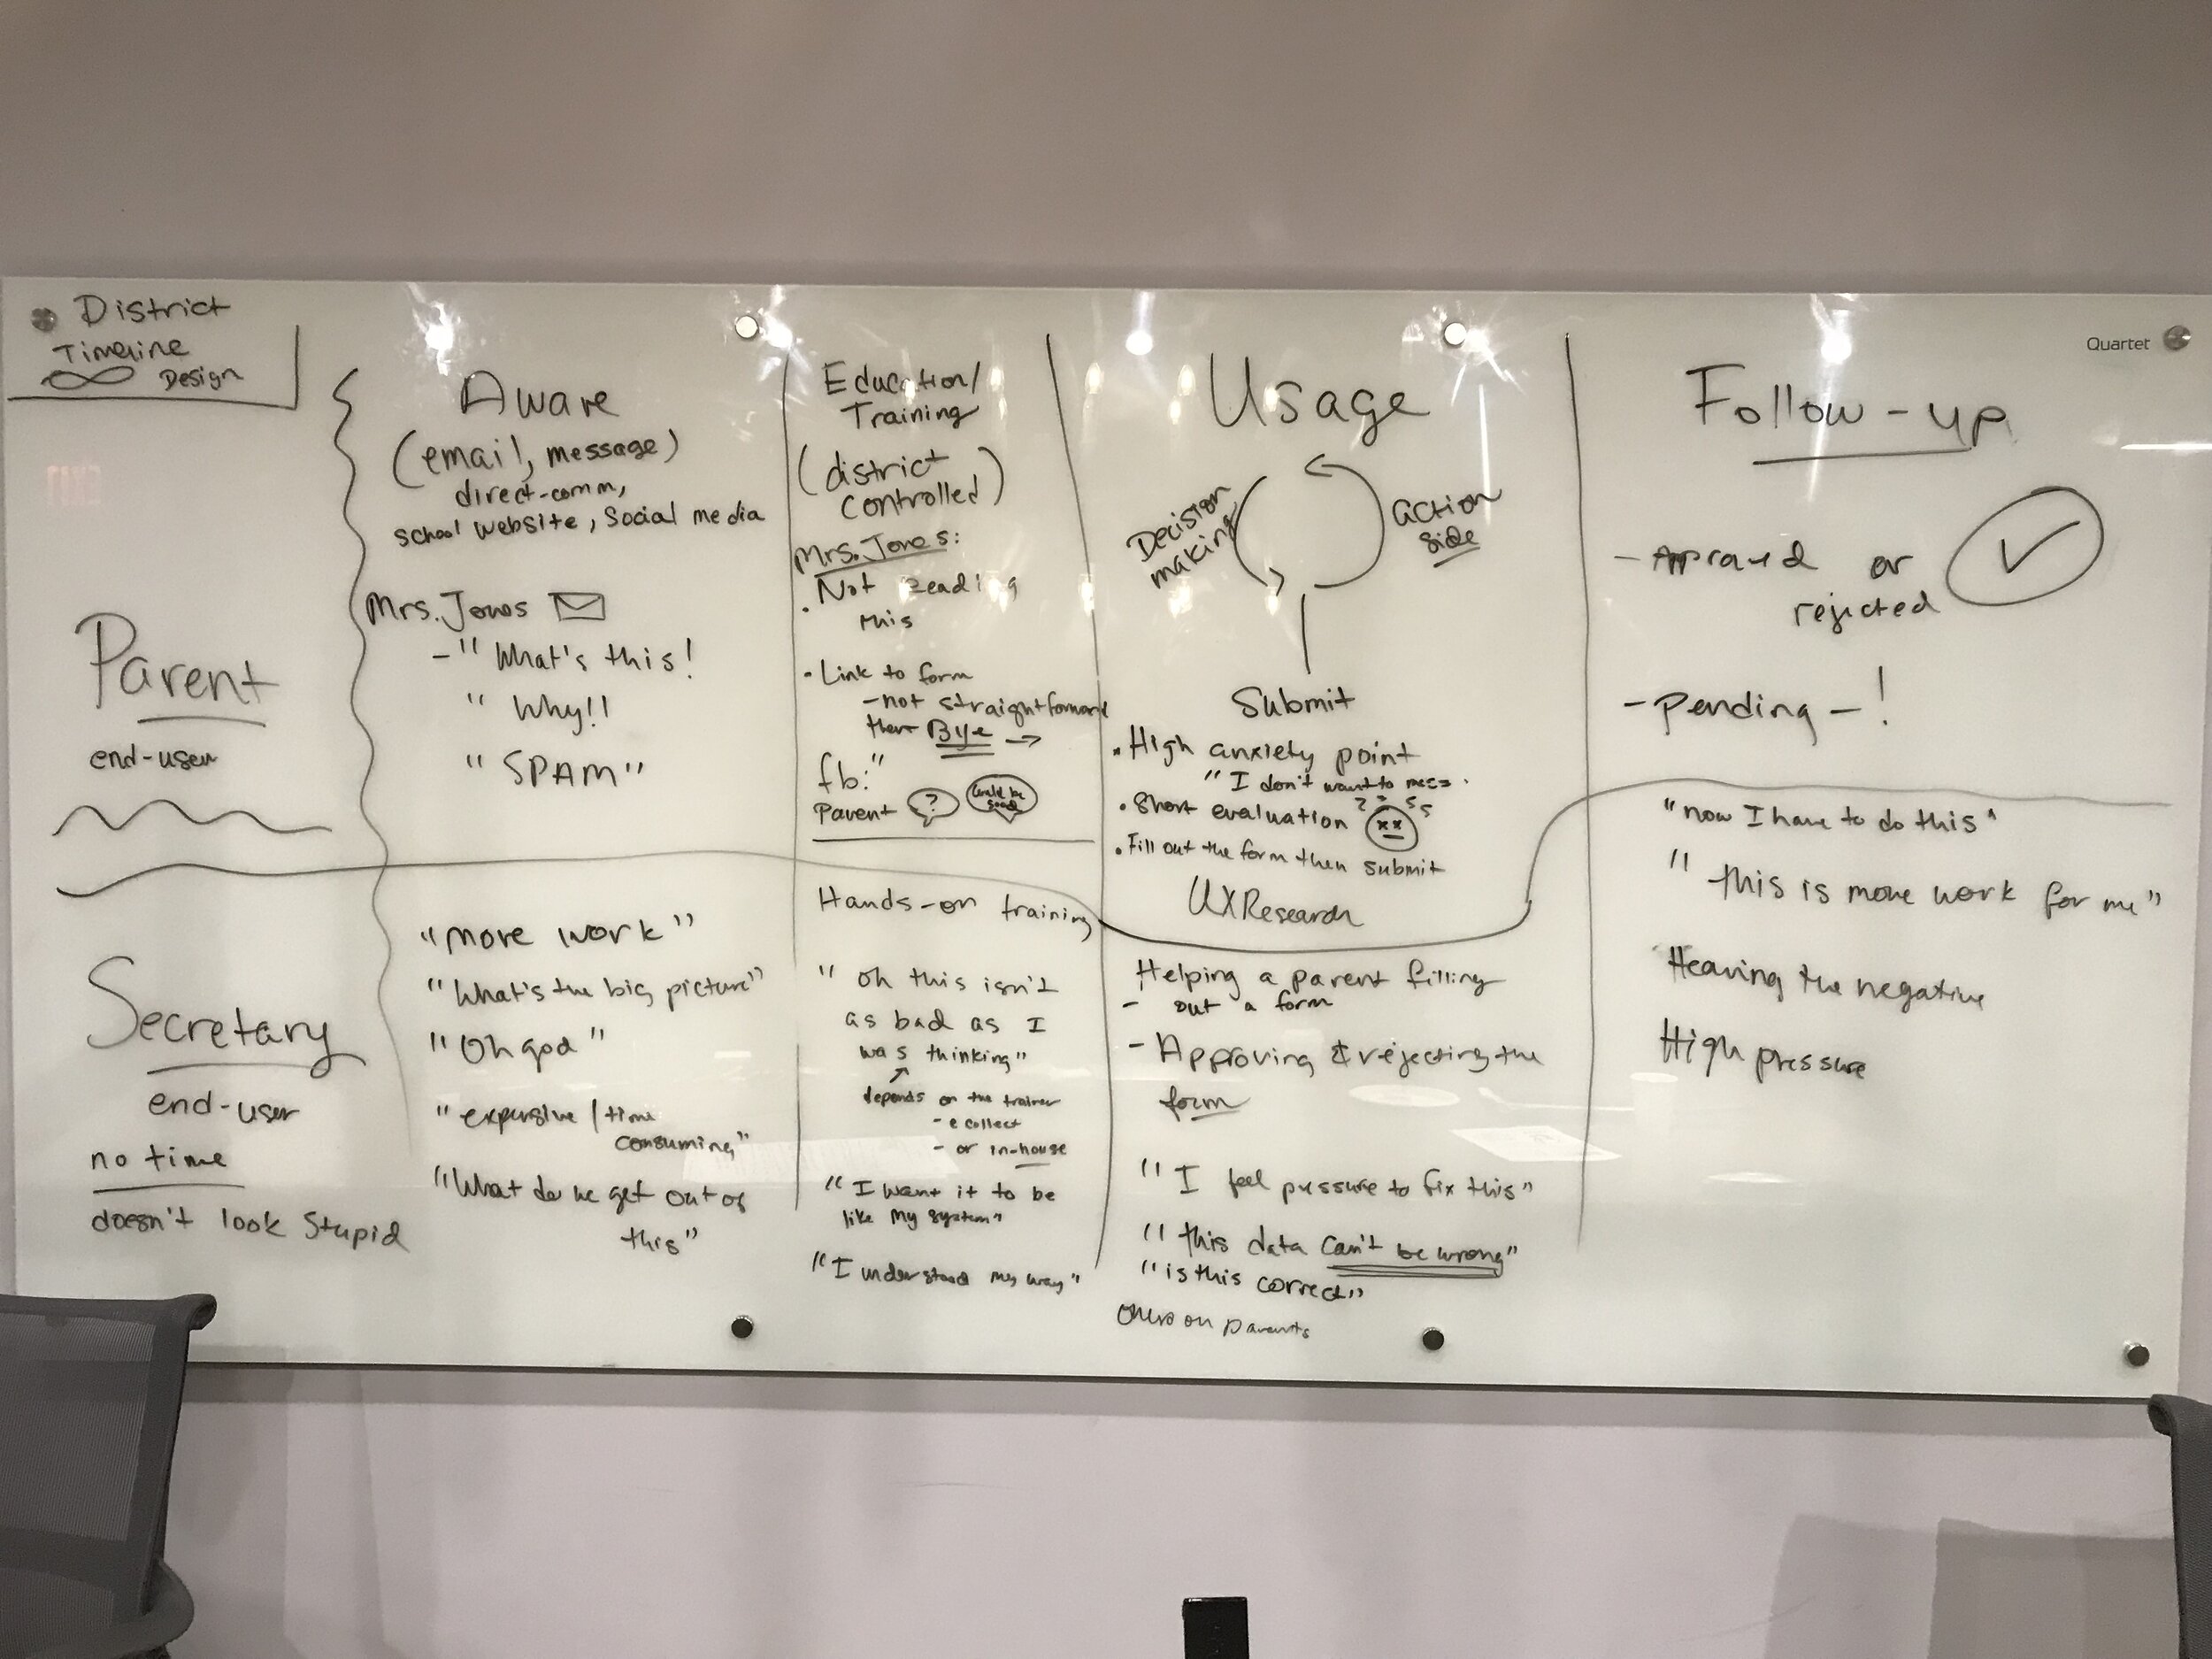 District
Timeline
Design
Quartet
Aware
(email, message)
direct-comm,
school website, Social media
Education/
Training
(district
controlled)
Usage
Decision
making
action
side
Submit
Follow-up
Parent
end-user
Mrs. Jones
-" What's this!
" Why!!
" SPAM"
Mrs. Jones:
• Not reading
this
• Link to form
- not straightforward
then Bye →
fb:"
Parent ? could be good
• High anxiety point
" I don't want to mess
• Short evaluation
• Fill out the form then submit
UXResearch
- Approved or
rejected
- Pending - !
Secretary
end-user
no time
doesn't look Stupid
"more work"
"What's the big picture"
"Oh god"
"expensive / time
consuming"
"What do we get out of
this"
Hands-on training
" Oh this isn't
as bad as I
was thinking"
depends on the trainer
- e collect
- or in-house
"I want it to be
like my system"
"I understood my way"
Helping a parent filling
- out a form
- Approving & rejecting the
form
" I feel pressure to fix this"
" this data can't be wrong"
" is this correct"
on parents
"now I have to do this"
" this is more work for me"
Hearing the negative
High pressure